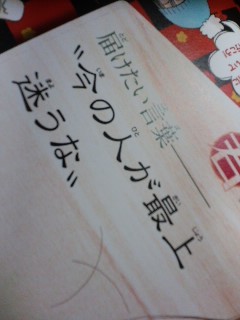 届けたい言葉――
"今の人が最上
迷うな"